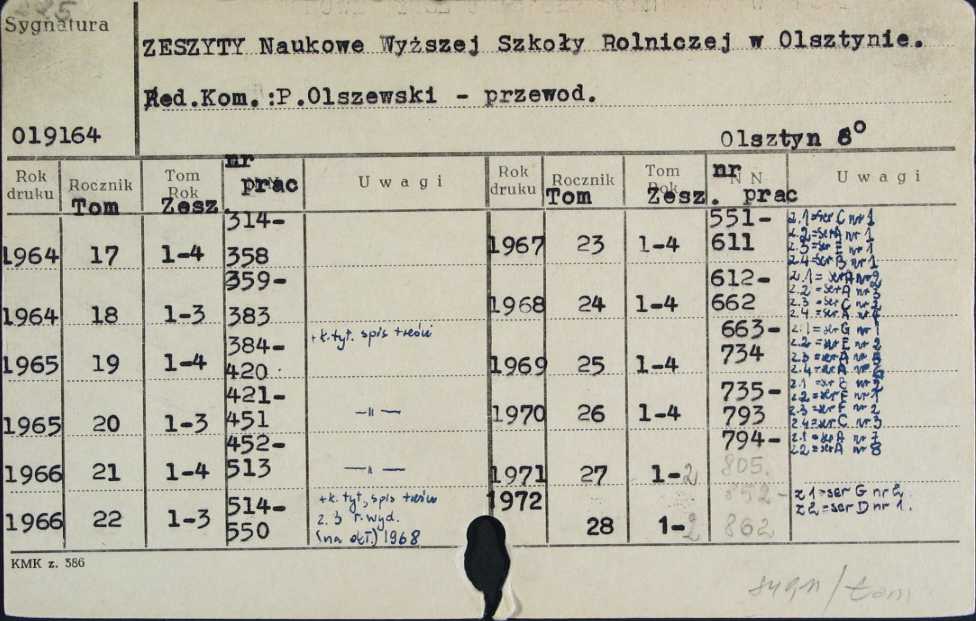 Sygnatura
ZESZYTY Naukowe Wyższej Szkoły Rolniczej w Olsztynie.
Red.Kom.:P.Olszewski - przewod.
019164
Olsztyn 8°
Rok druku Rocznik Tom Tom Rok Zesz. nr prac Uwagi Rok druku Rocznik Tom Tom Rok Zesz. nr N N prac Uwagi
1964 17 1-4 314-358
1964 18 1-3 359-383
1965 19 1-4 384-420 +k.tyt. spis treści
1965 20 1-3 421-451 —||—
1966 21 1-4 452-513 —||—
1966 22 1-3 514-550 +k.tyt, spis treści
z. 3 r.wyd.
(na okł.) 1968
1967 23 1-4 551-611 z.1=ser C nr 1
z.2=ser A nr 1
z.3=ser E nr 1
z.4=ser B nr 1
1968 24 1-4 612-662 z.1=ser A nr 2
z.2=ser A nr 3
z.3=ser C nr 2
z.4=ser A nr
1969 25 1-4 663-734 z.1=ser G nr 1
z.2=ser E nr 2
z.3=ser A nr
z.4=ser A nr
1970 26 1-4 735-793 z.1=ser nr 2
z.2=ser F nr 1
z.3=ser F nr 2
z.4=ser C nr 3
1971 27 1-2 794-805. z.1=ser A nr 7
z.2=ser A nr 8
1972 28 1-2 852-862 z.1=ser G nr 2.
z.2=ser D nr 1.
KMK z. 386
sygn/tom